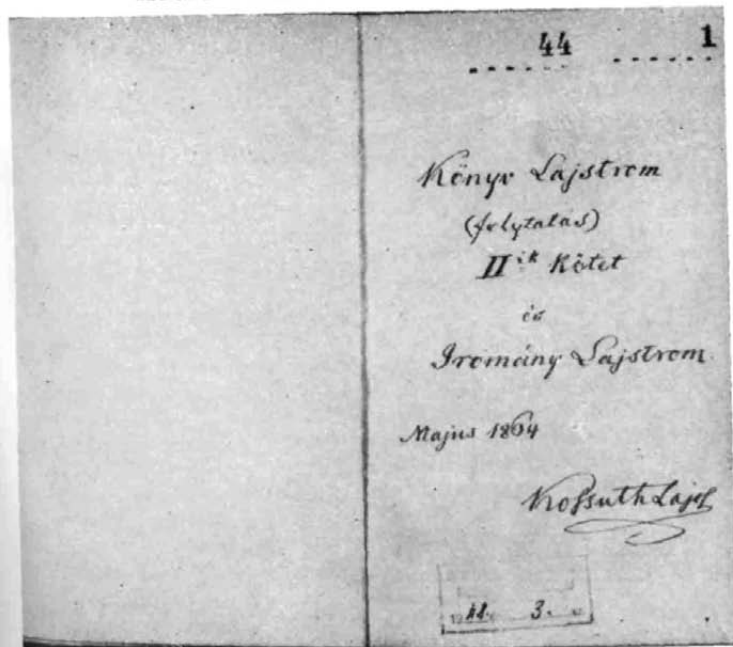 44 1
Könyv Lajstrom
(folytatás)
IIik Kötet
és
Iromány Lajstrom
Majus 1864
Kossuth Lajos
44. 3.